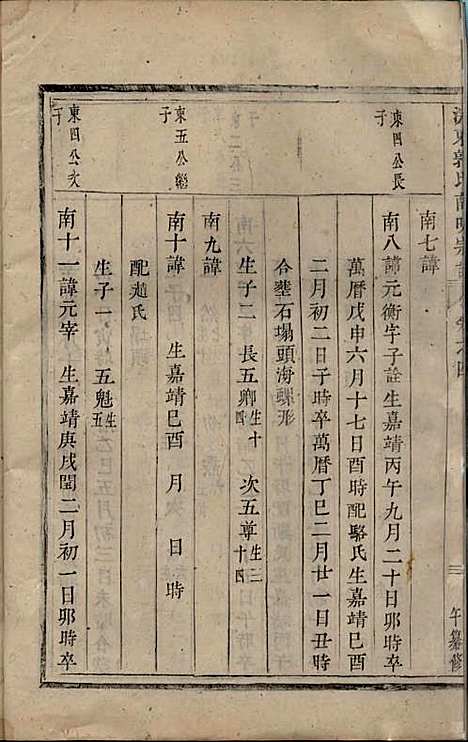 南七諱
東四公長子
南八諱元衡字子詮生嘉靖丙午九月二十日卯時卒
萬曆戊申六月十七日酉時配駱氏生嘉靖己酉
二月初二日子時卒萬曆丁巳二月廿一日丑時
合塟石塌頭海螺形
生子二 長五卿生十四 次五尊生二十四
南九諱
東五公繼子
南十諱 生嘉靖己酉 月 日 時
配趙氏
生子一 五魁生五
東四公次子
南十一諱元宰 生嘉靖庚戌閏二月初一日卯時卒
午纂修